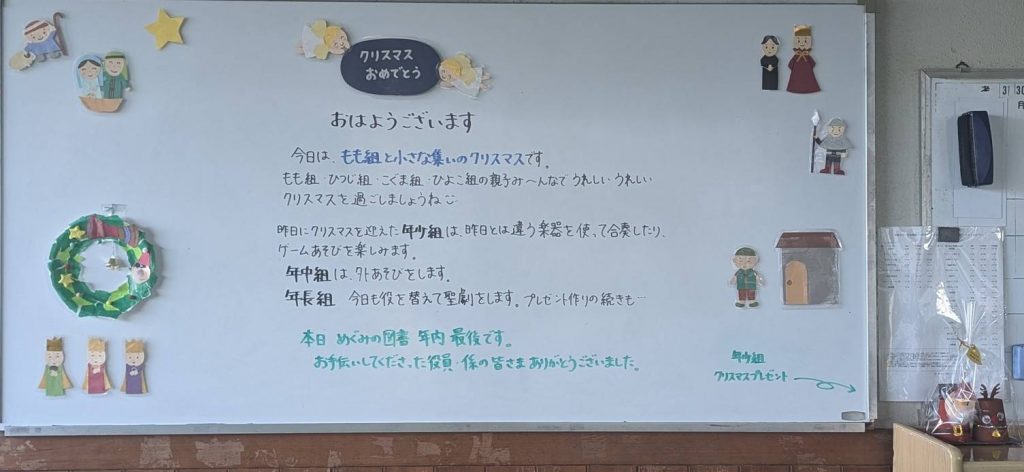 クリスマス
おめでとう
おはようございます
今日は、もも組と小さな集いのクリスマスです。
もも組・ひつじ組・こぐま組・ひよこ組の親子み〜んなでうれしい・うれしい
クリスマスを過ごしましょうね
昨日にクリスマスを迎えた年少組は、昨日とは違う楽器を使って合奏したり、
ゲームあそびを楽しみます。
年中組は、外あそびをします。
年長組 今日も役を替えて聖劇をします。プレゼント作りの続きも…
本日 めぐみの図書 年内 最後です。
お手伝いしてくださった役員・係の皆さまありがとうございました。
年少組
クリスマスプレゼント
31 30
月